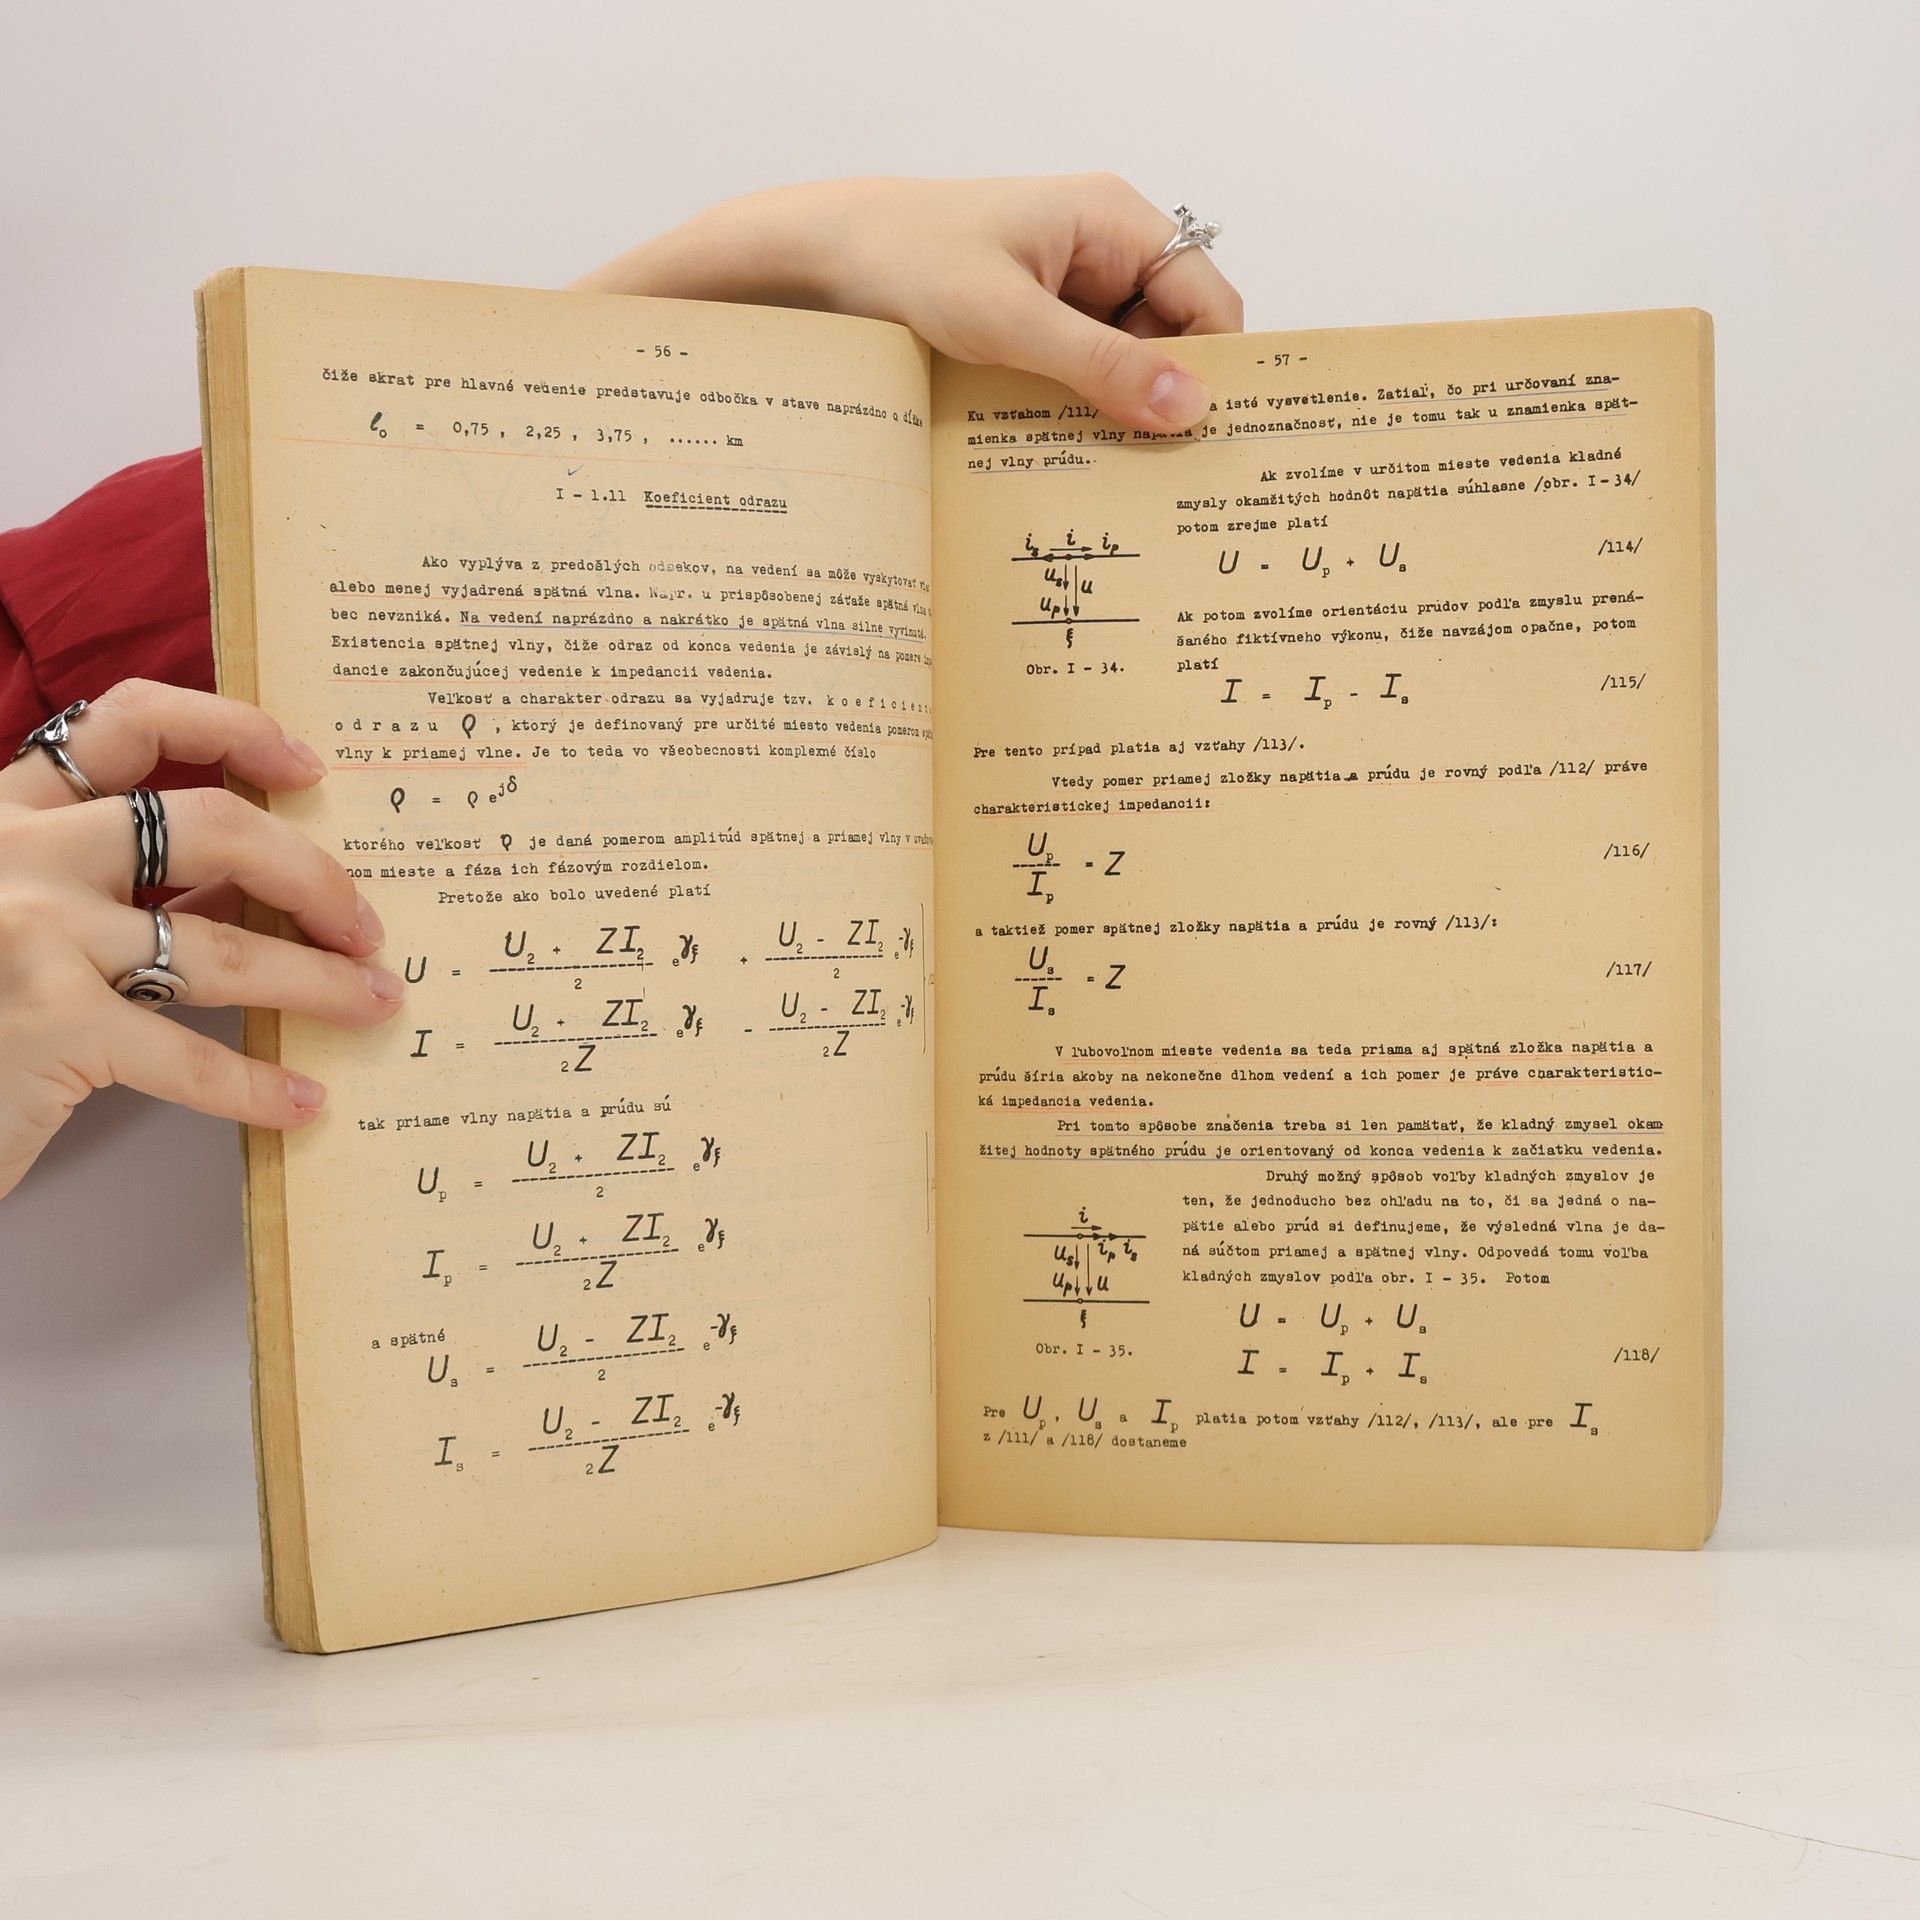 - 56 -
čiže skrat pre hlavné vedenie predstavuje odbočka v stave naprázdno o dĺžke
ℓ₀ = 0,75 , 2,25 , 3,75 , ...... km
I - 1.11 Koeficient odrazu
Ako vyplýva z predošlých odsekov, na vedení sa môže vyskytovať
alebo menej vyjadrená spätná vlna. Napr. u prispôsobenej záťaže spätná vlna
bec nevzniká. Na vedení naprázdno a nakrátko je spätná vlna silne vyvinutá.
Existencia spätnej vlny, čiže odraz od konca vedenia je závislý na pomere
dancie zakončujúcej vedenie k impedancii vedenia.
Veľkosť a charakter odrazu sa vyjadruje tzv. k o e f i c i e n t
o d r a z u ϱ , ktorý je definovaný pre určité miesto vedenia pomerom
vlny k priamej vlne. Je to teda vo všeobecnosti komplexné číslo
ϱ = ϱ e^jδ
ktorého veľkosť ϱ je daná pomerom amplitúd spätnej a priamej vlny v
nom mieste a fáza ich fázovým rozdielom.
Pretože ako bolo uvedené platí
U = (U₂ + ZI₂)/2 e^γξ + (U₂ - ZI₂)/2 e^-γξ
I = (U₂ + ZI₂)/2Z e^γξ - (U₂ - ZI₂)/2Z e^-γξ
tak priame vlny napätia a prúdu sú
U_p = (U₂ + ZI₂)/2 e^γξ
I_p = (U₂ + ZI₂)/2Z e^γξ
a spätné
U_s = (U₂ - ZI₂)/2 e^-γξ
I_s = (U₂ - ZI₂)/2Z e^-γξ
- 57 -
Ku vzťahom /111/ a isté vysvetlenie. Zatiaľ, čo pri určovaní zna-
mienka spätnej vlny napätia je jednoznačnosť, nie je tomu tak u znamienka spät-
nej vlny prúdu.
Ak zvolíme v určitom mieste vedenia kladné
zmysly okamžitých hodnôt napätia súhlasne /obr. I - 34/
potom zrejme platí
U = U_p + U_s /114/
i_s i i_p
u_s u
u_p
ξ
Obr. I - 34.
Ak potom zvolíme orientáciu prúdov podľa zmyslu prená-
šaného fiktívneho výkonu, čiže navzájom opačne, potom
platí
I = I_p - I_s /115/
Pre tento prípad platia aj vzťahy /113/.
Vtedy pomer priamej zložky napätia a prúdu je rovný podľa /112/ práve
charakteristickej impedancii:
U_p/I_p = Z /116/
a taktiež pomer spätnej zložky napätia a prúdu je rovný /113/:
U_s/I_s = Z /117/
V ľubovoľnom mieste vedenia sa teda priama aj spätná zložka napätia a
prúdu šíria akoby na nekonečne dlhom vedení a ich pomer je práve charakteristic-
ká impedancia vedenia.
Pri tomto spôsobe značenia treba si len pamätať, že kladný zmysel okam
žitej hodnoty spätného prúdu je orientovaný od konca vedenia k začiatku vedenia.
Druhý možný spôsob voľby kladných zmyslov je
ten, že jednoducho bez ohľadu na to, či sa jedná o na-
pätie alebo prúd si definujeme, že výsledná vlna je da-
ná súčtom priamej a spätnej vlny. Odpovedá tomu voľba
kladných zmyslov podľa obr. I - 35. Potom
i
u_s i_p i_s
u_p u
ξ
Obr. I - 35.
U = U_p + U_s
I = I_p + I_s /118/
Pre U_p, U_s a I_p platia potom vzťahy /112/, /113/, ale pre I_s
z /111/ a /118/ dostaneme